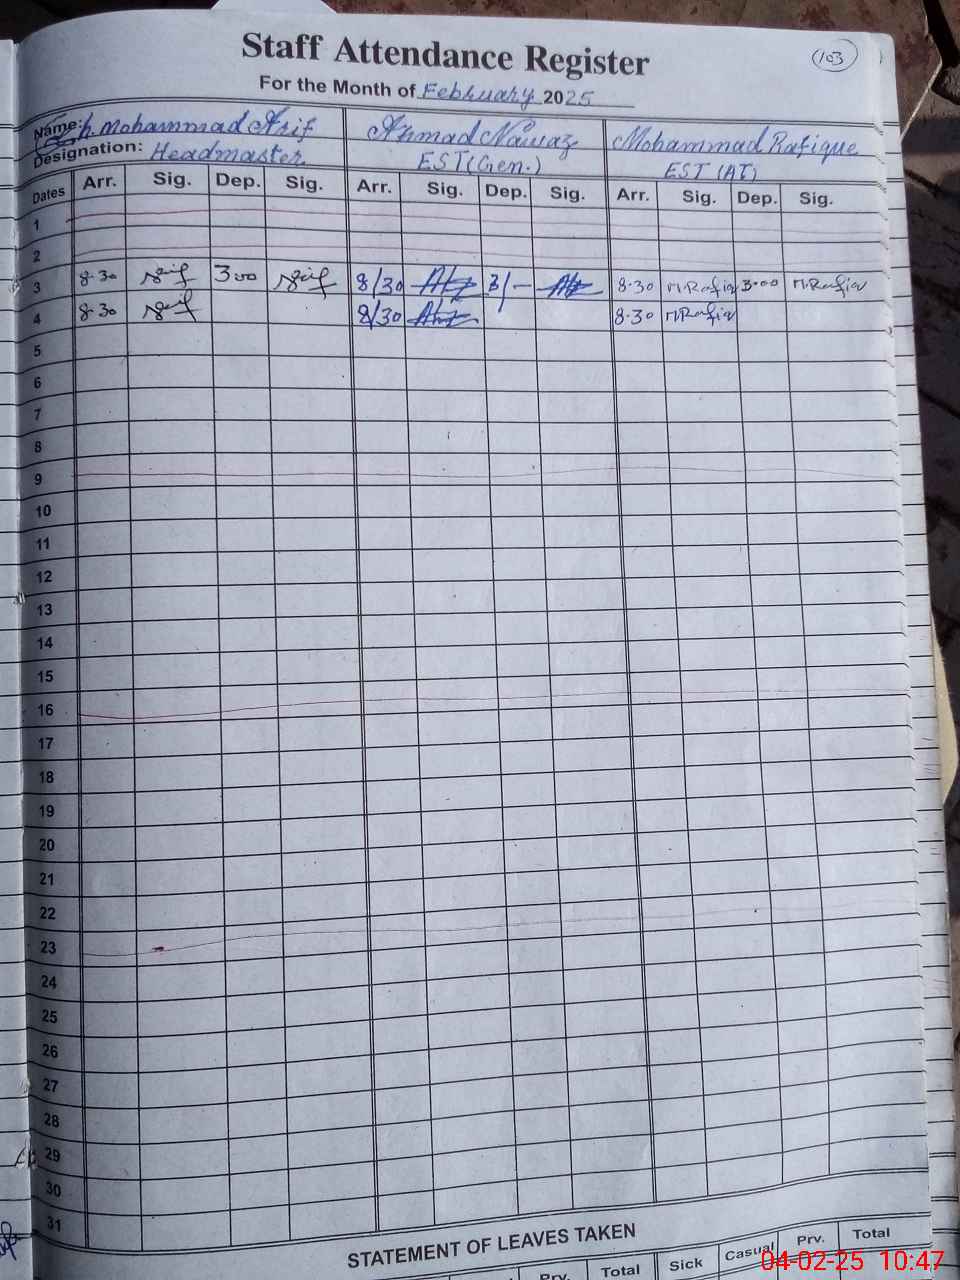 Staff Attendance Register
(103)
For the Month of February 2025
Name: Ch. Mohammad Arif Ahmad Nawaz Mohammad Rafique
Designation: Headmaster EST (Gen.) EST (AT)
Dates Arr. Sig. Dep. Sig. Arr. Sig. Dep. Sig. Arr. Sig. Dep. Sig.
1
2
3 8.30 3:00 8/30 3/- 8.30 M.Rafiq 3:00 M.Rafiq
4 8.30 8/30 8.30 M.Rafiq
5
6
7
8
9
10
11
12
13
14
15
16
17
18
19
20
21
22
23
24
25
26
27
28
29
30
31
STATEMENT OF LEAVES TAKEN
Prv. Total Sick Casual Prv. Total
04-02-25 10:47